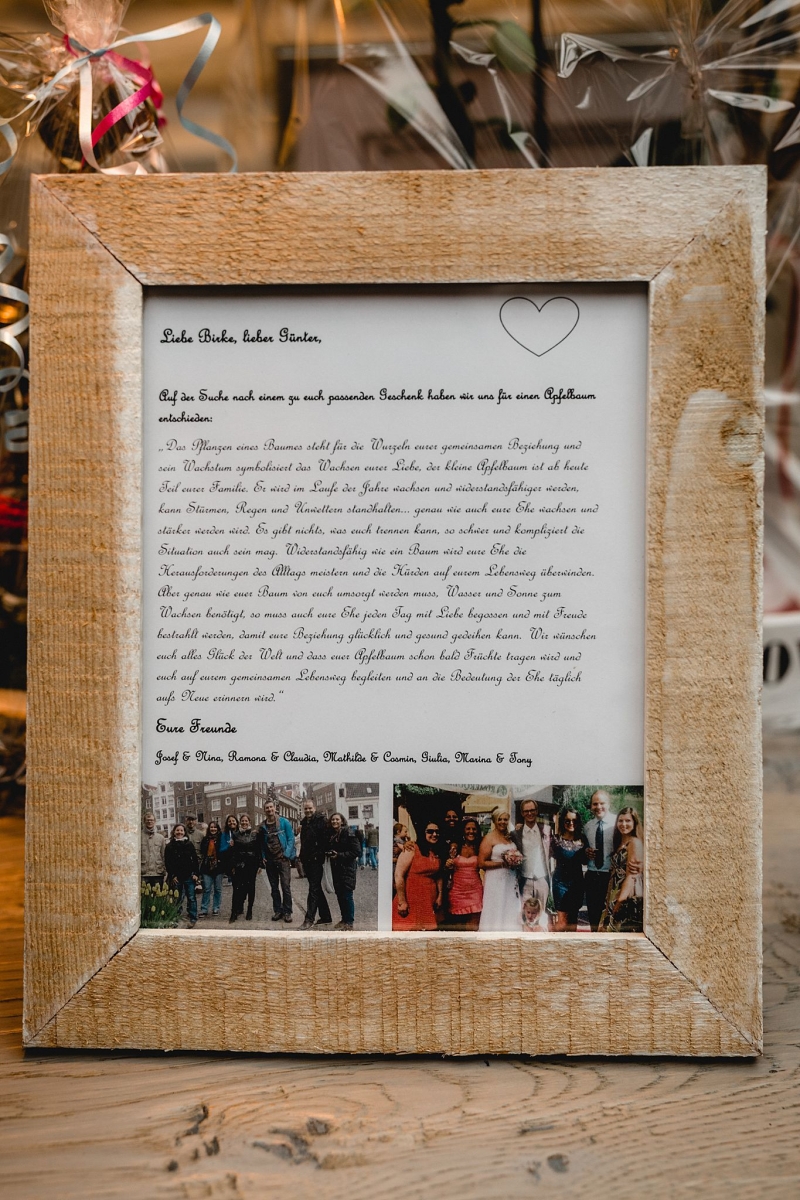 Liebe Birke, lieber Günter,
Auf der Suche nach einem zu euch passenden Geschenk haben wir uns für einen Apfelbaum
entschieden:
„Das Pflanzen eines Baumes steht für die Wurzeln eurer gemeinsamen Beziehung und
sein Wachstum symbolisiert das Wachsen eurer Liebe, der kleine Apfelbaum ist ab heute
Teil eurer Familie. Er wird im Laufe der Jahre wachsen und widerstandsfähiger werden,
kann Stürmen, Regen und Unwettern standhalten... genau wie auch eure Ehe wachsen und
stärker werden wird. Es gibt nichts, was euch trennen kann, so schwer und kompliziert die
Situation auch sein mag. Widerstandsfähig wie ein Baum wird eure Ehe die
Herausforderungen des Alltags meistern und die Hürden auf eurem Lebensweg überwinden.
Aber genau wie euer Baum von euch umsorgt werden muss, Wasser und Sonne zum
Wachsen benötigt, so muss auch eure Ehe jeden Tag mit Liebe begossen und mit Freude
bestrahlt werden, damit eure Beziehung glücklich und gesund gedeihen kann. Wir wünschen
euch alles Glück der Welt und dass euer Apfelbaum schon bald Früchte tragen wird und
euch auf eurem gemeinsamen Lebensweg begleiten und an die Bedeutung der Ehe täglich
aufs Neue erinnern wird.“
Eure Freunde
Josef & Nina, Ramona & Claudia, Mathilde & Cosmin, Giulia, Marina & Tony